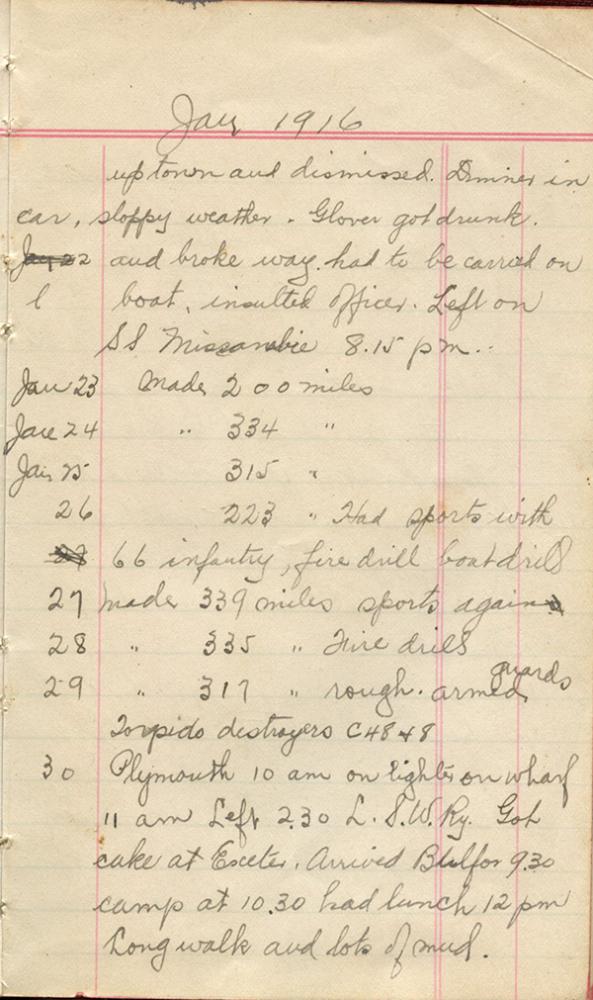 Jany 1916
up town and dismissed. Dinner in
car, sloppy weather. Glover got drunk.
and broke way. had to be carried on
boat, insulted officer. Left on
SS Missanabie 8.15 pm.
Jan 23 Made 200 miles
Jan 24 " 334 "
Jan 25 315 "
26 223 " Had sports with
66 infantry, fire drill boat drill
27 made 339 miles sports again
28 " 335 " Fire drill
29 " 317 " rough. armed guards
Torpido destroyers C48 & 8
30 Plymouth 10 am on lighter on wharf
11 am Left 2.30 L. S. W. Ry. Got
cake at Exeter. Arrived 9.30
camp at 10.30 had lunch 12 pm
Long walk and lots of mud.